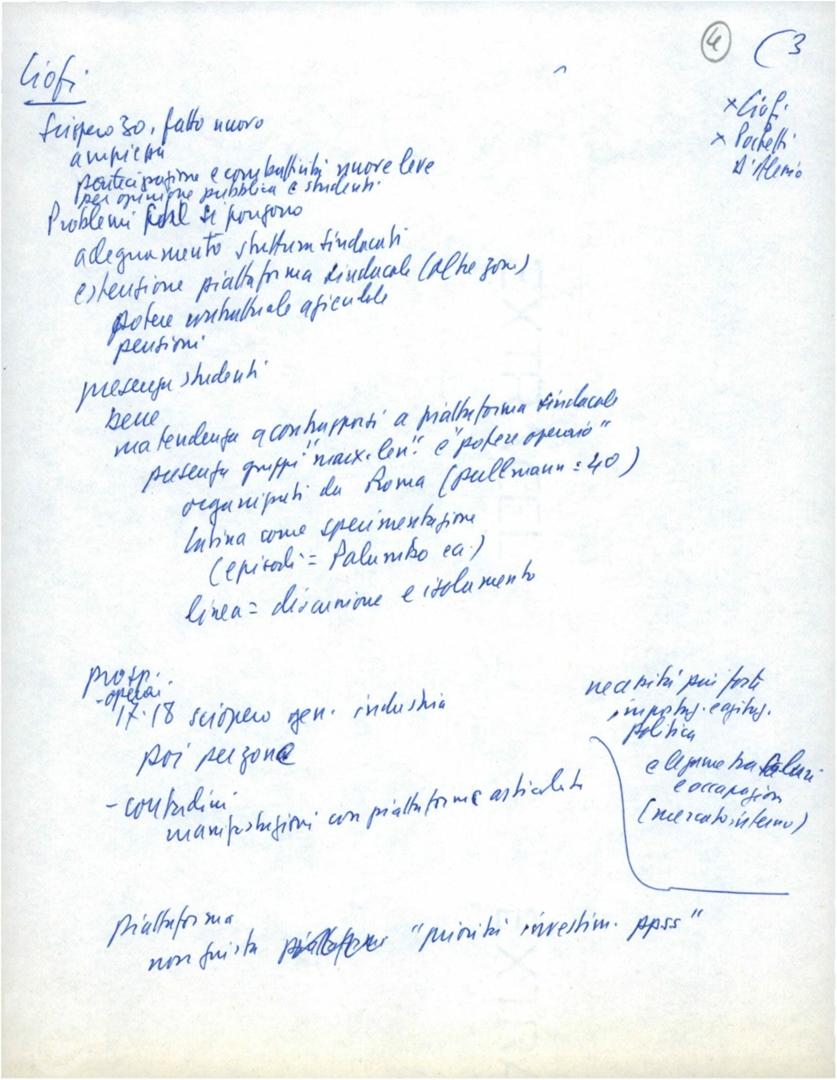 4 (3
Ciofi
× Ciofi
× Pochetti
D'Alessio
Sciopero 30, fatto nuovo
ampiezza
partecipazione e combattività nuove leve
per opinione pubblica e studenti
Problemi si pongono
adeguamento strutture sindacati
estensione piattaforma sindacale (altre zone)
potere contrattuale agricolo
pensioni
presenza studenti
bene
ma tendenza a contrapporsi a piattaforma sindacale
presenza gruppi "marx. len." e "potere operaio"
organizzati da Roma (pullmann = 40)
Latina come sperimentazione
(episodi = Palumbo ea.)
linea = discussione e isolamento
prosp.
- operai.
17-18 sciopero gen. industria
poi per zone
- contadini
manifestazioni con piattaforme articolate
necessità più forte
impostaz. e agitaz.
politica
e legame tra salari
e occupazion
(mercato interno)
piattaforma
non giusta "priorità investim. ppss"